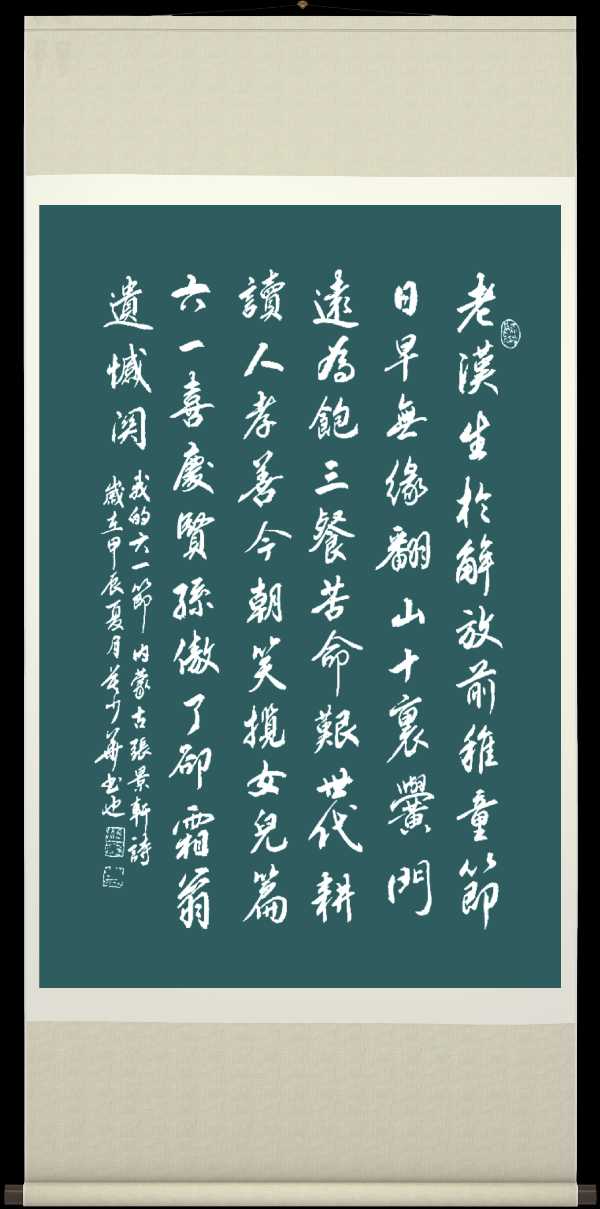 老漢生於解放前稚童節
日早無緣翻山十裏黌門
遠為飽三餐苦命艱世代耕
讀人孝善今朝笑攬女兒篇
六一喜慶賢孫傲了卻霜翁
遺憾関
我的六一節 内蒙古張景軒詩
歲在甲辰夏月少華書也